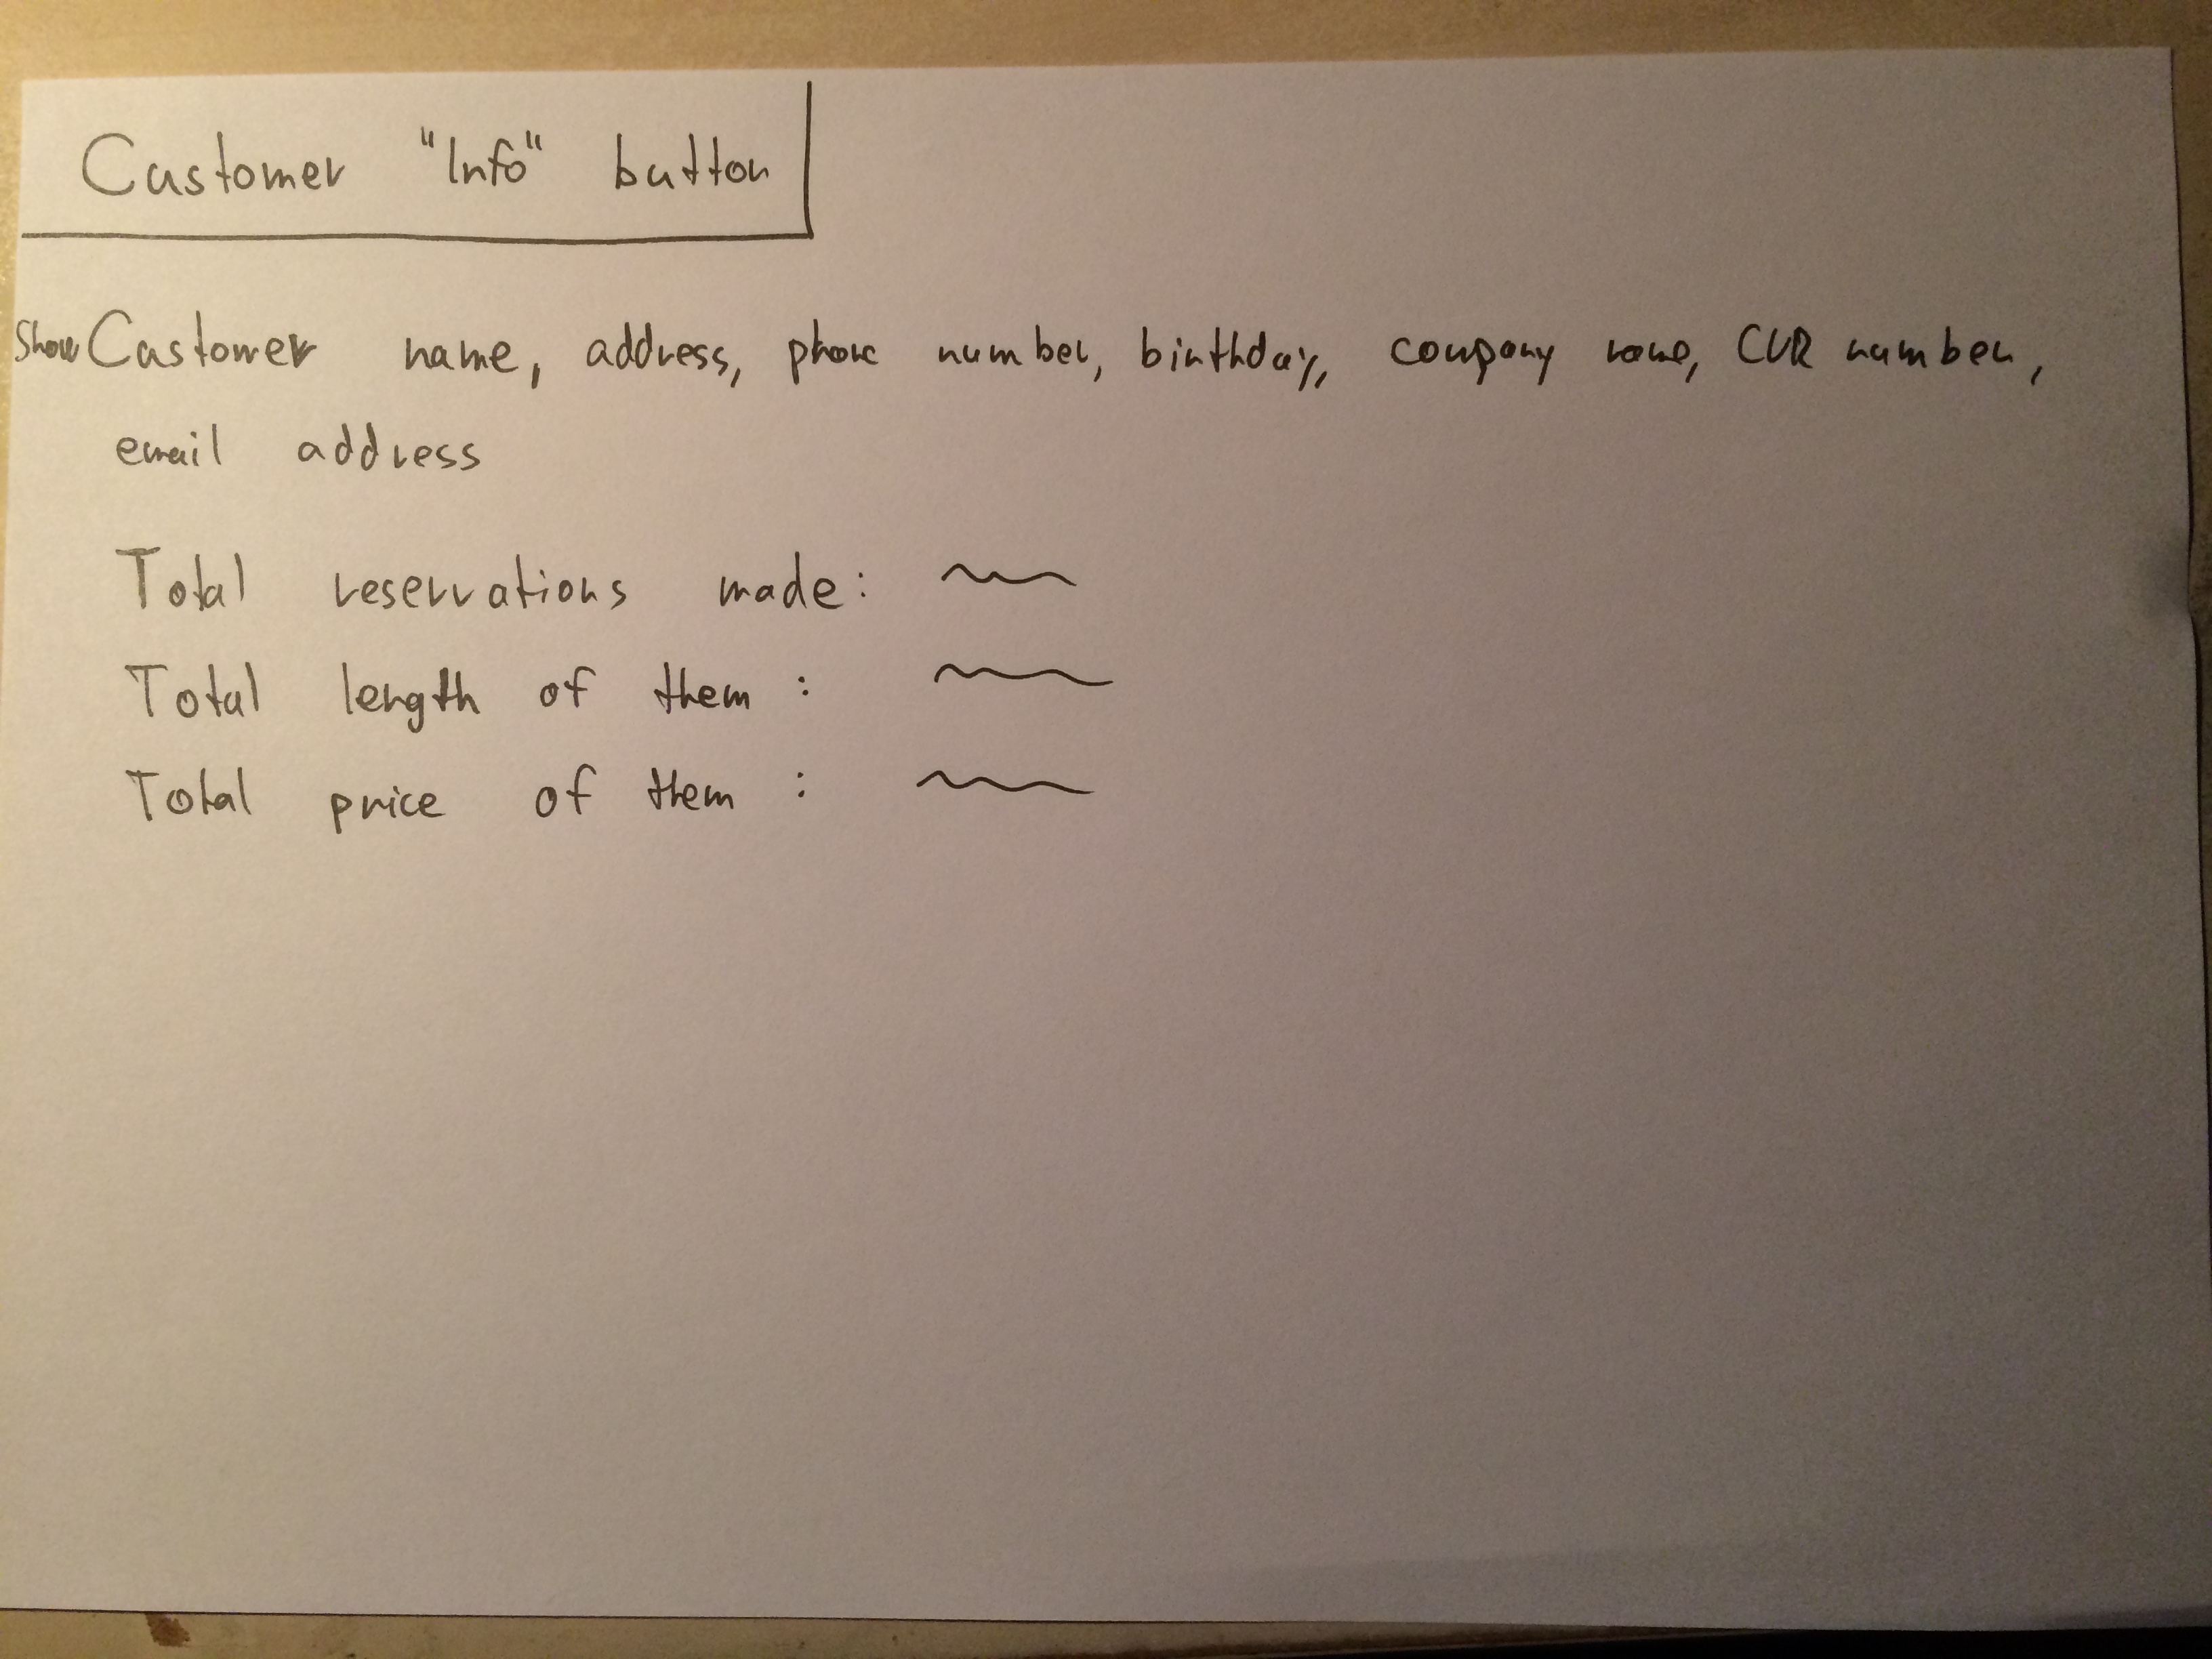 Customer "Info" button
Show Customer name, address, phone number, birthday, company name, CVR number,
email address
Total reservations made:
Total length of them :
Total price of them :